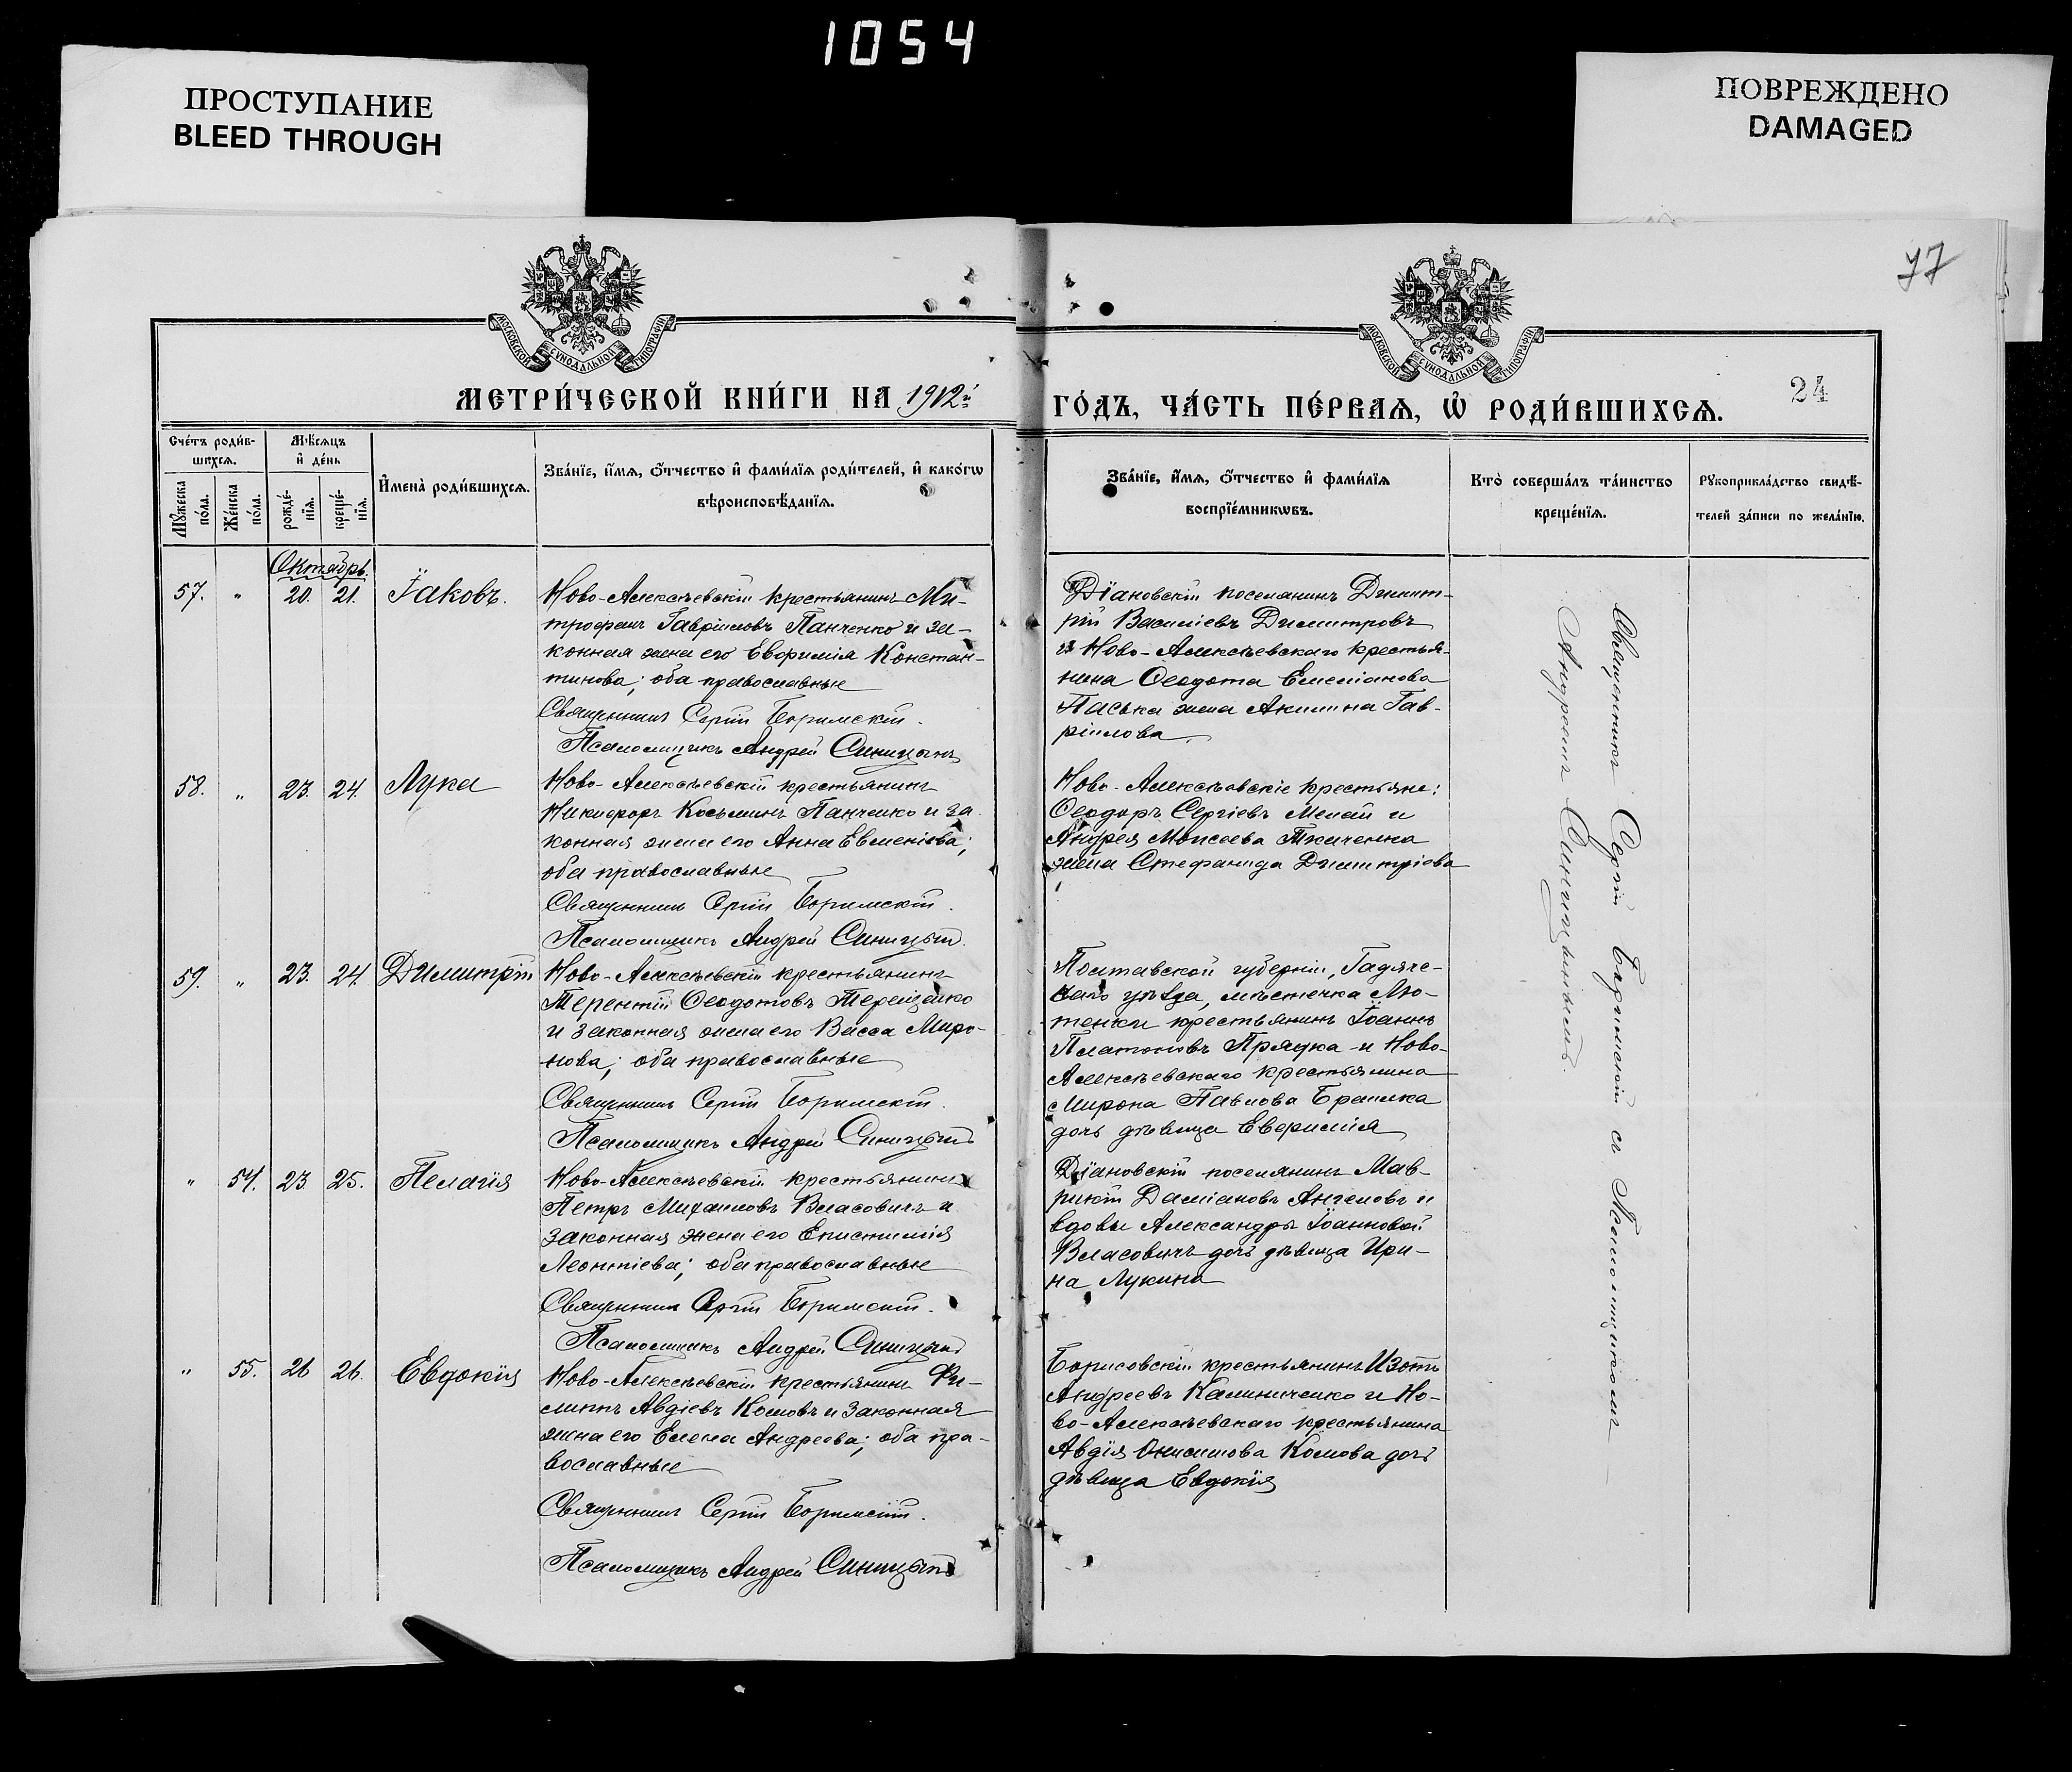 1054
ПРОСТУПАНИЕ
BLEED THROUGH
ПОВРЕЖДЕНО
DAMAGED
77
МОСКОВСКОЙ СѴНОДАЛЬНОЙ ТИПОГРАФІИ
МОСКОВСКОЙ СѴНОДАЛЬНОЙ ТИПОГРАФІИ
МЕТРИ́ЧЕСКОЙ КНИ́ГИ НА 1912й
ГО́ДЪ, ЧА́СТЬ ПЕ́РВАѦ, Ѡ҆ РОДИ́ВШИХСѦ.
24
Сче́тъ роди́в-
шихсѧ.
Мѣ́сѧцъ
и҆ де́нь
Му́жеска по́ла.
Же́нска по́ла.
рожде́-
нїѧ.
креще́-
нїѧ.
И҆мена̀ роди́вшихсѧ.
Зва́нїе, и҆́мѧ, ѻ҆́тчество и҆ фами́лїѧ роди́телей, и҆ како́гѡ
вѣроисповѣ́данїѧ.
Зва́нїе, и҆́мѧ, ѻ҆́тчество и҆ фами́лїѧ
воспрїе́мникѡвъ.
Кто̀ соверша́лъ та́инство
креще́нїѧ.
Рꙋкоприкла́дство свидѣ́-
телей за́писи по жела́нїю.
Октябрь.
57. " 20. 21. Їаковъ.
Ново-Алексѣевскій крестьянинъ Ми-
трофанъ Гавріиловъ Панченко и за-
конная жена его Евфимія Констан-
тинова; оба православные
Священникъ Сергій Боримскій.
Псаломщикъ Андрей Синицынъ
Діановскій поселянинъ Димит-
рій Василіевъ Димитровъ
и Ново-Алексѣевскаго крестья-
нина Ѳеодота Емеліанова
Паська жена Акилина Гав-
ріилова
58. " 23. 24. Лука
Ново-Алексѣевскій крестьянинъ
Никифоръ Косьминъ Панченко и за
конная жена его Анна Евменіева;
оба православные
Священникъ Сергій Боримскій.
Псаломщикъ Андрей Синицынъ.
Ново-Алексѣевскіе крестьяне:
Ѳеодоръ Сергіевъ Мелай и
Андрея Моисеева Ткаченка
жена Стефанида Димитріева
59. " 23. 24. Димитрій
Ново-Алексѣевскій крестьянинъ
Терентій Ѳеодотовъ Терещенко
и законная жена его Васса Миро-
нова; оба православные
Священникъ Сергій Боримскій.
Псаломщикъ Андрей Синицынъ
Полтавской губерніи, Гадяче-
скаго уѣзда, мѣстечка Лю-
теньки крестьянинъ Їоаннъ
Платоновъ Прядка и Ново-
Алексѣевскаго крестьянина
Мирона Павлова Браилка
дочь дѣвица Евфимія
" 54. 23. 25. Пелагія
Ново-Алексѣевскій крестьянинъ
Петръ Михаиловъ Власовичъ и
законная жена его Епистимія
Леонтіева; оба православные
Священникъ Сергій Боримскій.
Псаломщикъ Андрей Синицынъ
Діановскій поселянинъ Мав-
рикій Даміановъ Ангеловъ и
вдовы Александры Їоанновой
Власовичъ дочь дѣвица Ири-
на Лукина
" 55. 26 26. Евдокія
Ново-Алексѣевскій крестьянинъ Фи-
липпъ Авдіевъ Комовъ и законная
жена его Елена Андреева; оба пра-
вославные
Священникъ Сергій Боримскій.
Псаломщикъ Андрей Синицынъ
Борисовскій крестьянинъ Изотъ
Андреевъ Калиниченко и Но-
во-Алексѣевскаго крестьянина
Авдія Онисимова Комова дочь
дѣвица Евдокія
Священникъ Сергій Боримскій съ Псаломщикомъ
Андреемъ Синицынымъ.